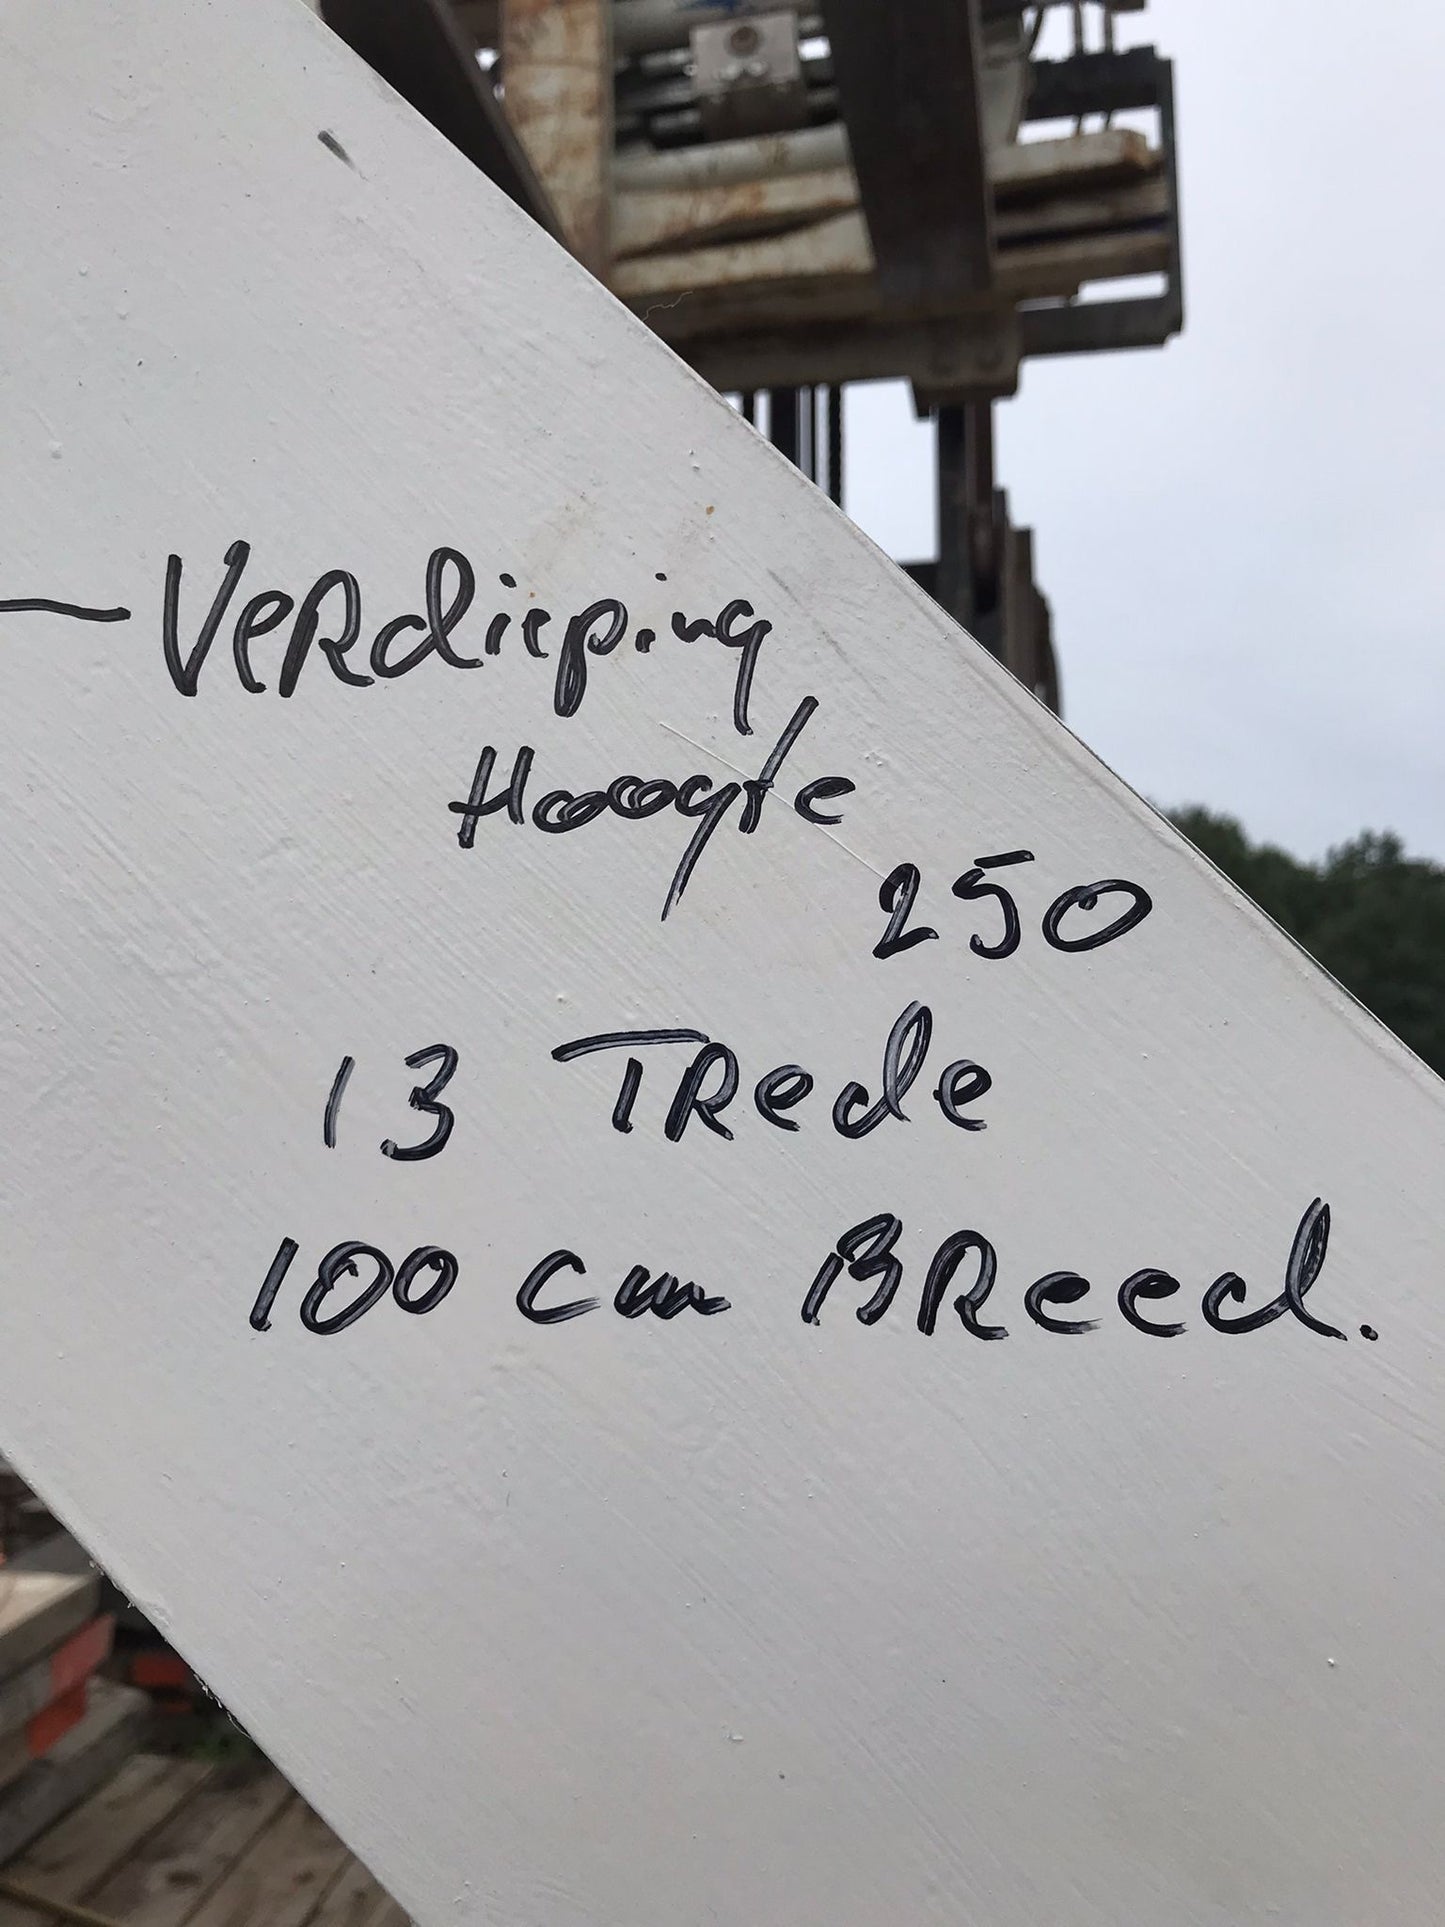 Verdieping
Hoogte
250
13 Trede
100 cm Breed.